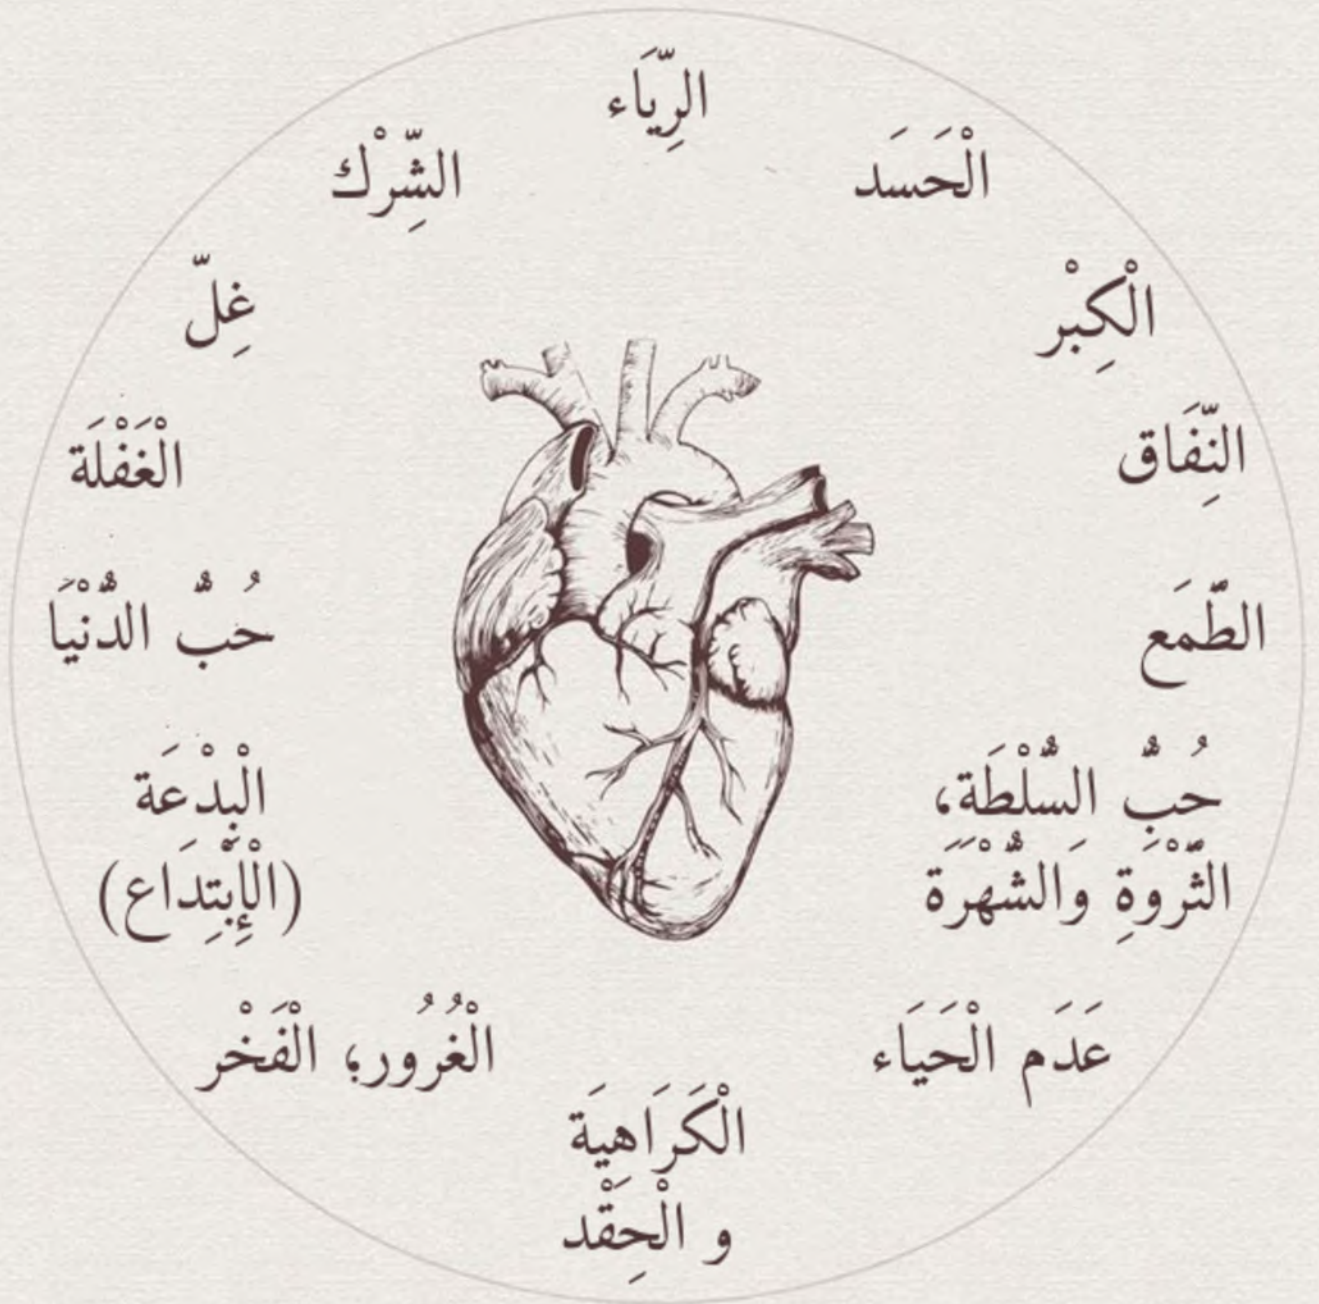 الرِّيَاء
الْحَسَد
الْكِبْر
النِّفَاق
الطَّمَع
حُبُّ السُّلْطَة،
الثَّرْوَةِ وَالشُّهْرَة
عَدَم الْحَيَاء
الْكَرَاهِيَة
و الْحِقْد
الْغُرُور؛ الْفَخْر
الْبِدْعَة
(الْإِبْتِدَاع)
حُبُّ الدُّنْيَا
الْغَفْلَة
غِلّ
الشِّرْك